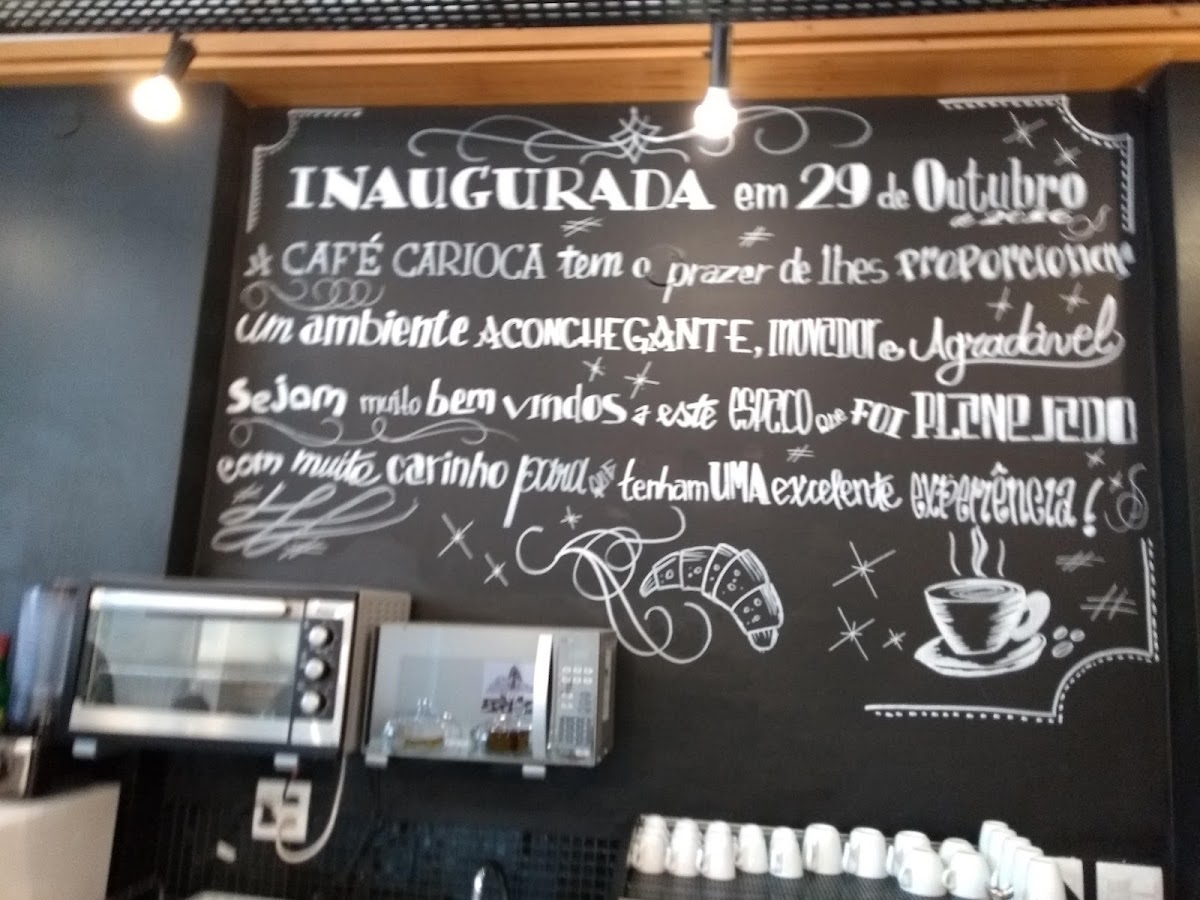 INAUGURADA em 29 de Outubro
A CAFÉ CARIOCA tem o prazer de lhes proporcionar
um ambiente ACONCHEGANTE, INOVADOR e Agradável
Sejam muito bem vindos a este ESPAÇO que FOI PLANEJADO
com muito carinho para que tenham UMA excelente experiência!